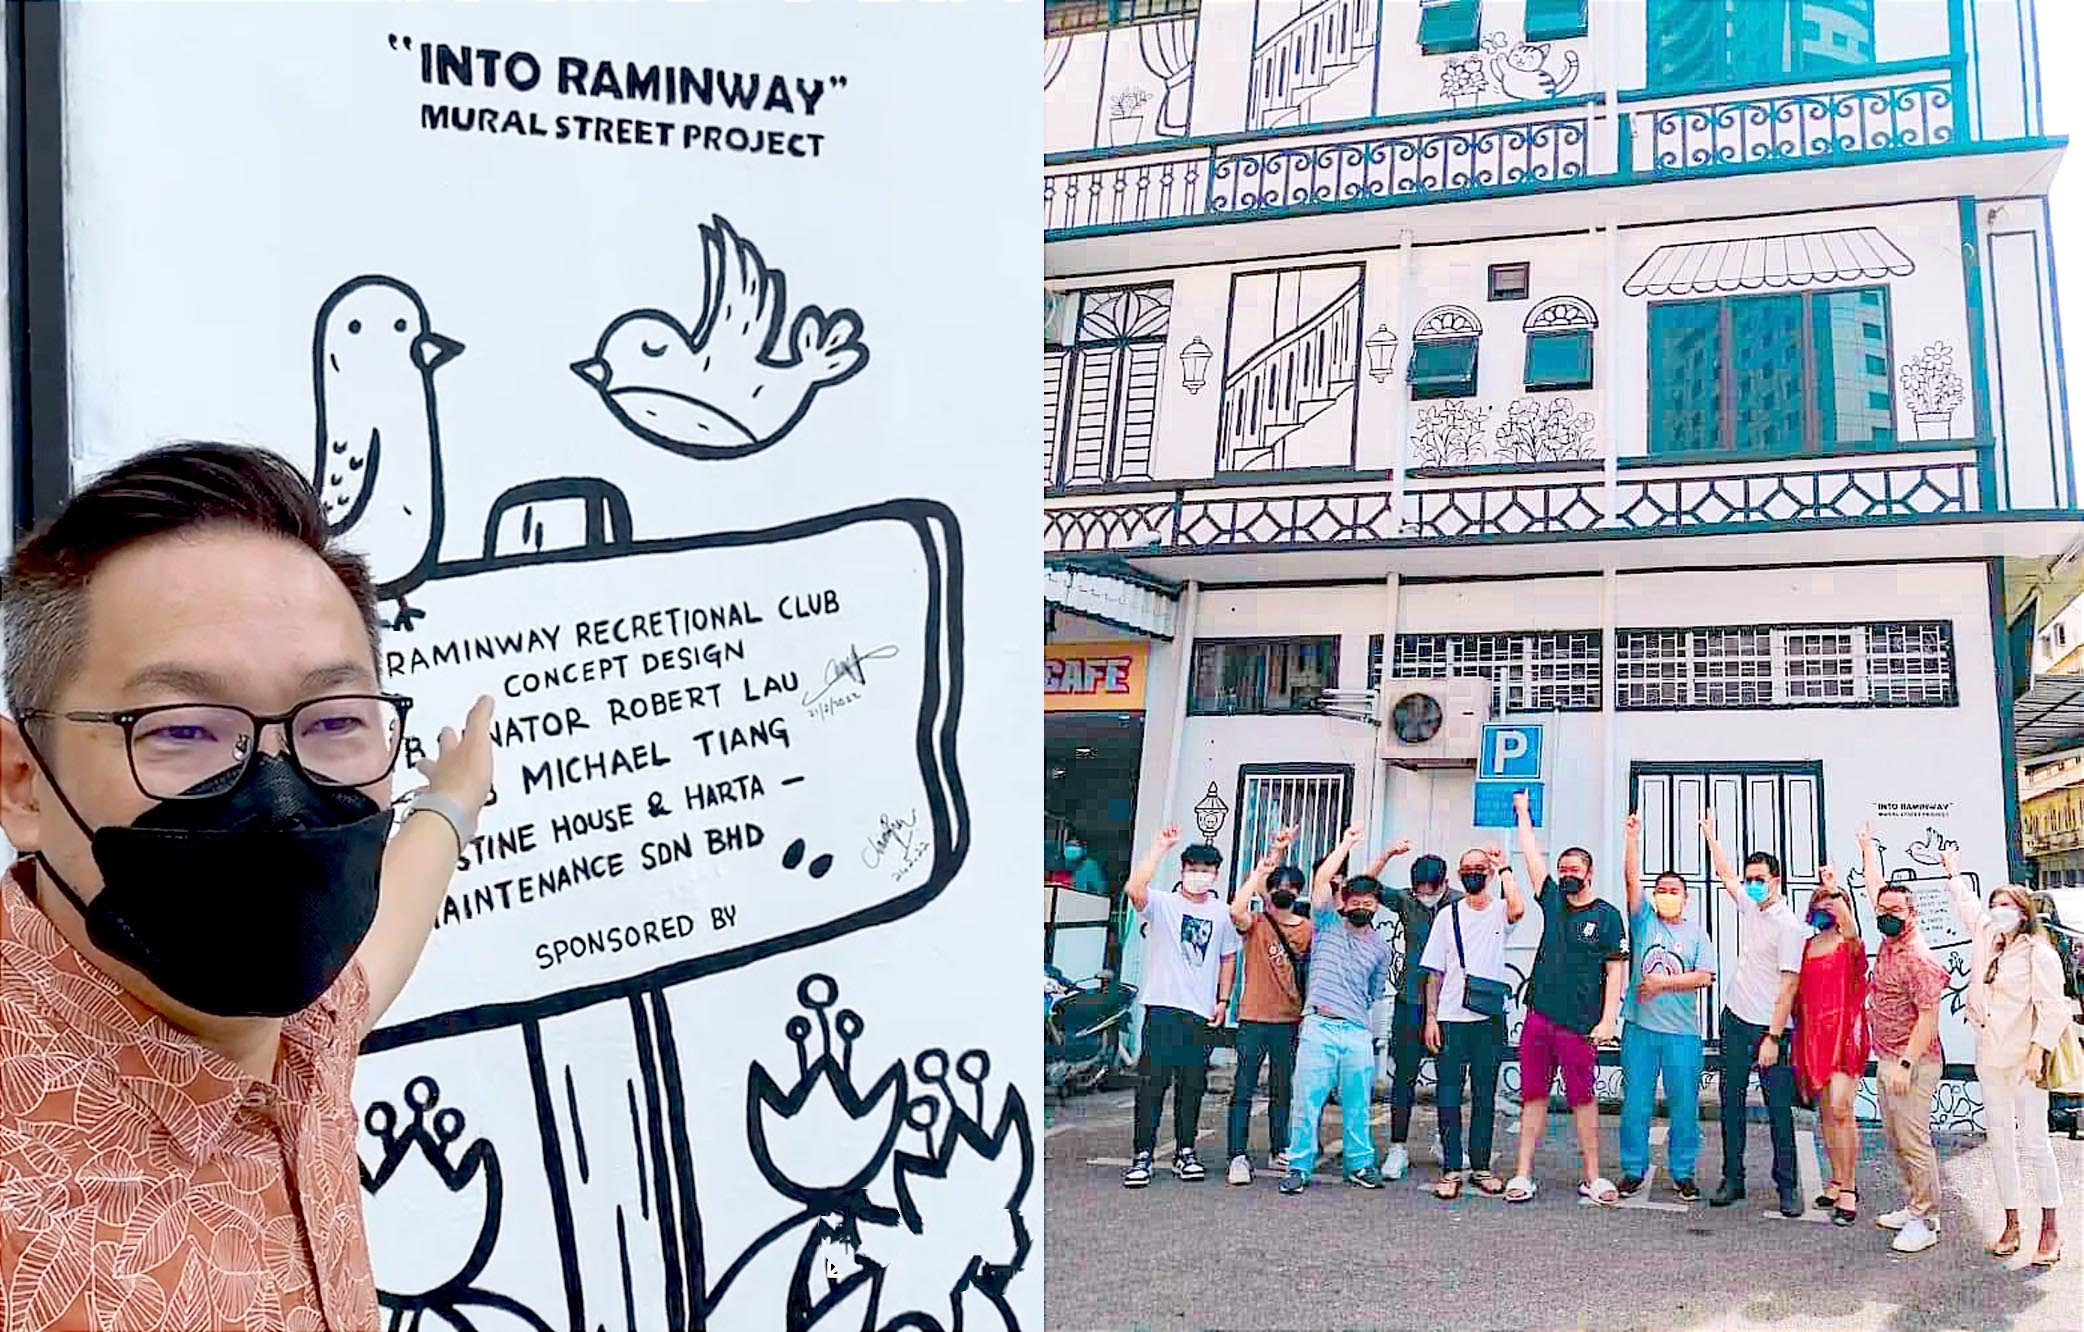 “INTO RAMINWAY”
MURAL STREET PROJECT
RAMINWAY RECRETIONAL CLUB
CONCEPT DESIGN
NATOR ROBERT LAU
21/2/2022
MICHAEL TIANG
STINE HOUSE & HARTA –
MAINTENANCE SDN BHD
21.2.22
SPONSORED BY
CAFE
P
"INTO RAMINWAY"
MURAL STREET PROJECT